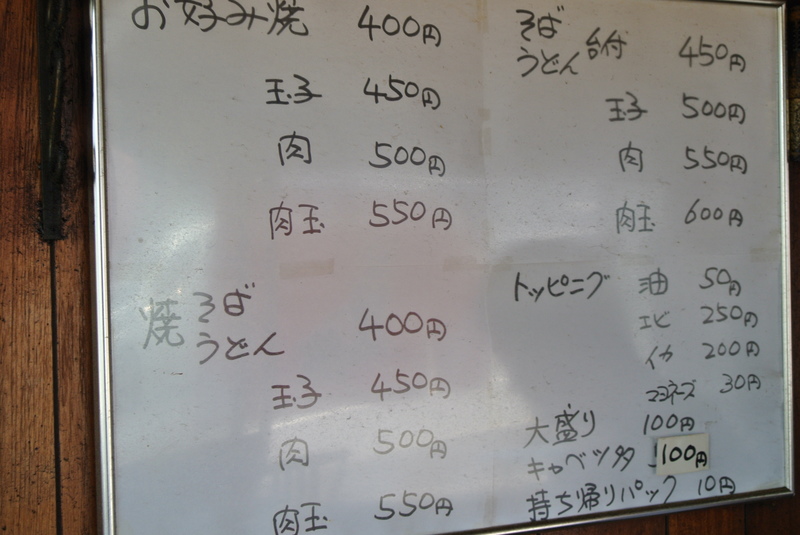 お好み焼 400円
玉子 450円
肉 500円
肉玉 550円
焼 そば
うどん 400円
玉子 450円
肉 500円
肉玉 550円
そば
うどん 台付 450円
玉子 500円
肉 550円
肉玉 600円
トッピング 油 50円
エビ 250円
イカ 200円
マヨネーズ 30円
大盛り 100円
キャベツ多 100円
持ち帰りパック 10円